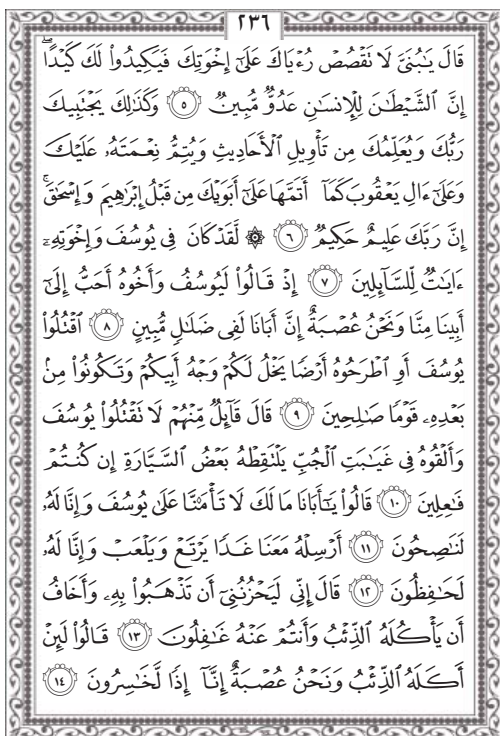 ٢٣٦
قَالَ يَـٰبُنَىَّ لَا نَقْصُصْ رُءْيَاكَ عَلَىٰٓ إِخْوَتِكَ فَيَكِيدُوا۟ لَكَ كَيْدًا ۖ
إِنَّ ٱلشَّيْطَـٰنَ لِلْإِنسَـٰنِ عَدُوٌّ مُّبِينٌ ٥ وَكَذَٰلِكَ يَجْتَبِيكَ
رَبُّكَ وَيُعَلِّمُكَ مِن تَأْوِيلِ ٱلْأَحَادِيثِ وَيُتِمُّ نِعْمَتَهُۥ عَلَيْكَ
وَعَلَىٰٓ ءَالِ يَعْقُوبَ كَمَآ أَتَمَّهَا عَلَىٰٓ أَبَوَيْكَ مِن قَبْلُ إِبْرَٰهِيمَ وَإِسْحَـٰقَ ۚ
إِنَّ رَبَّكَ عَلِيمٌ حَكِيمٌ ٦ ۞ لَّقَدْ كَانَ فِى يُوسُفَ وَإِخْوَتِهِۦٓ
ءَايَـٰتٌ لِّلسَّآئِلِينَ ٧ إِذْ قَالُوا۟ لَيُوسُفُ وَأَخُوهُ أَحَبُّ إِلَىٰٓ
أَبِينَا مِنَّا وَنَحْنُ عُصْبَةٌ إِنَّ أَبَانَا لَفِى ضَلَـٰلٍ مُّبِينٍ ٨ ٱقْتُلُوا۟
يُوسُفَ أَوِ ٱطْرَحُوهُ أَرْضًا يَخْلُ لَكُمْ وَجْهُ أَبِيكُمْ وَتَكُونُوا۟ مِنۢ
بَعْدِهِۦ قَوْمًا صَـٰلِحِينَ ٩ قَالَ قَآئِلٌ مِّنْهُمْ لَا نَقْتُلُوا۟ يُوسُفَ
وَأَلْقُوهُ فِى غَيَـٰبَتِ ٱلْجُبِّ يَلْتَقِطْهُ بَعْضُ ٱلسَّيَّارَةِ إِن كُنتُمْ
فَـٰعِلِينَ ١٠ قَالُوا۟ يَـٰٓأَبَانَا مَا لَكَ لَا تَأْمَ۫نَّا عَلَىٰ يُوسُفَ وَإِنَّا لَهُۥ
لَنَـٰصِحُونَ ١١ أَرْسِلْهُ مَعَنَا غَدًا يَرْتَعْ وَيَلْعَبْ وَإِنَّا لَهُۥ
لَحَـٰفِظُونَ ١٢ قَالَ إِنِّى لَيَحْزُنُنِىٓ أَن تَذْهَبُوا۟ بِهِۦ وَأَخَافُ
أَن يَأْكُلَهُ ٱلذِّئْبُ وَأَنتُمْ عَنْهُ غَـٰفِلُونَ ١٣ قَالُوا۟ لَئِنْ
أَكَلَهُ ٱلذِّئْبُ وَنَحْنُ عُصْبَةٌ إِنَّآ إِذًا لَّخَـٰسِرُونَ ١٤